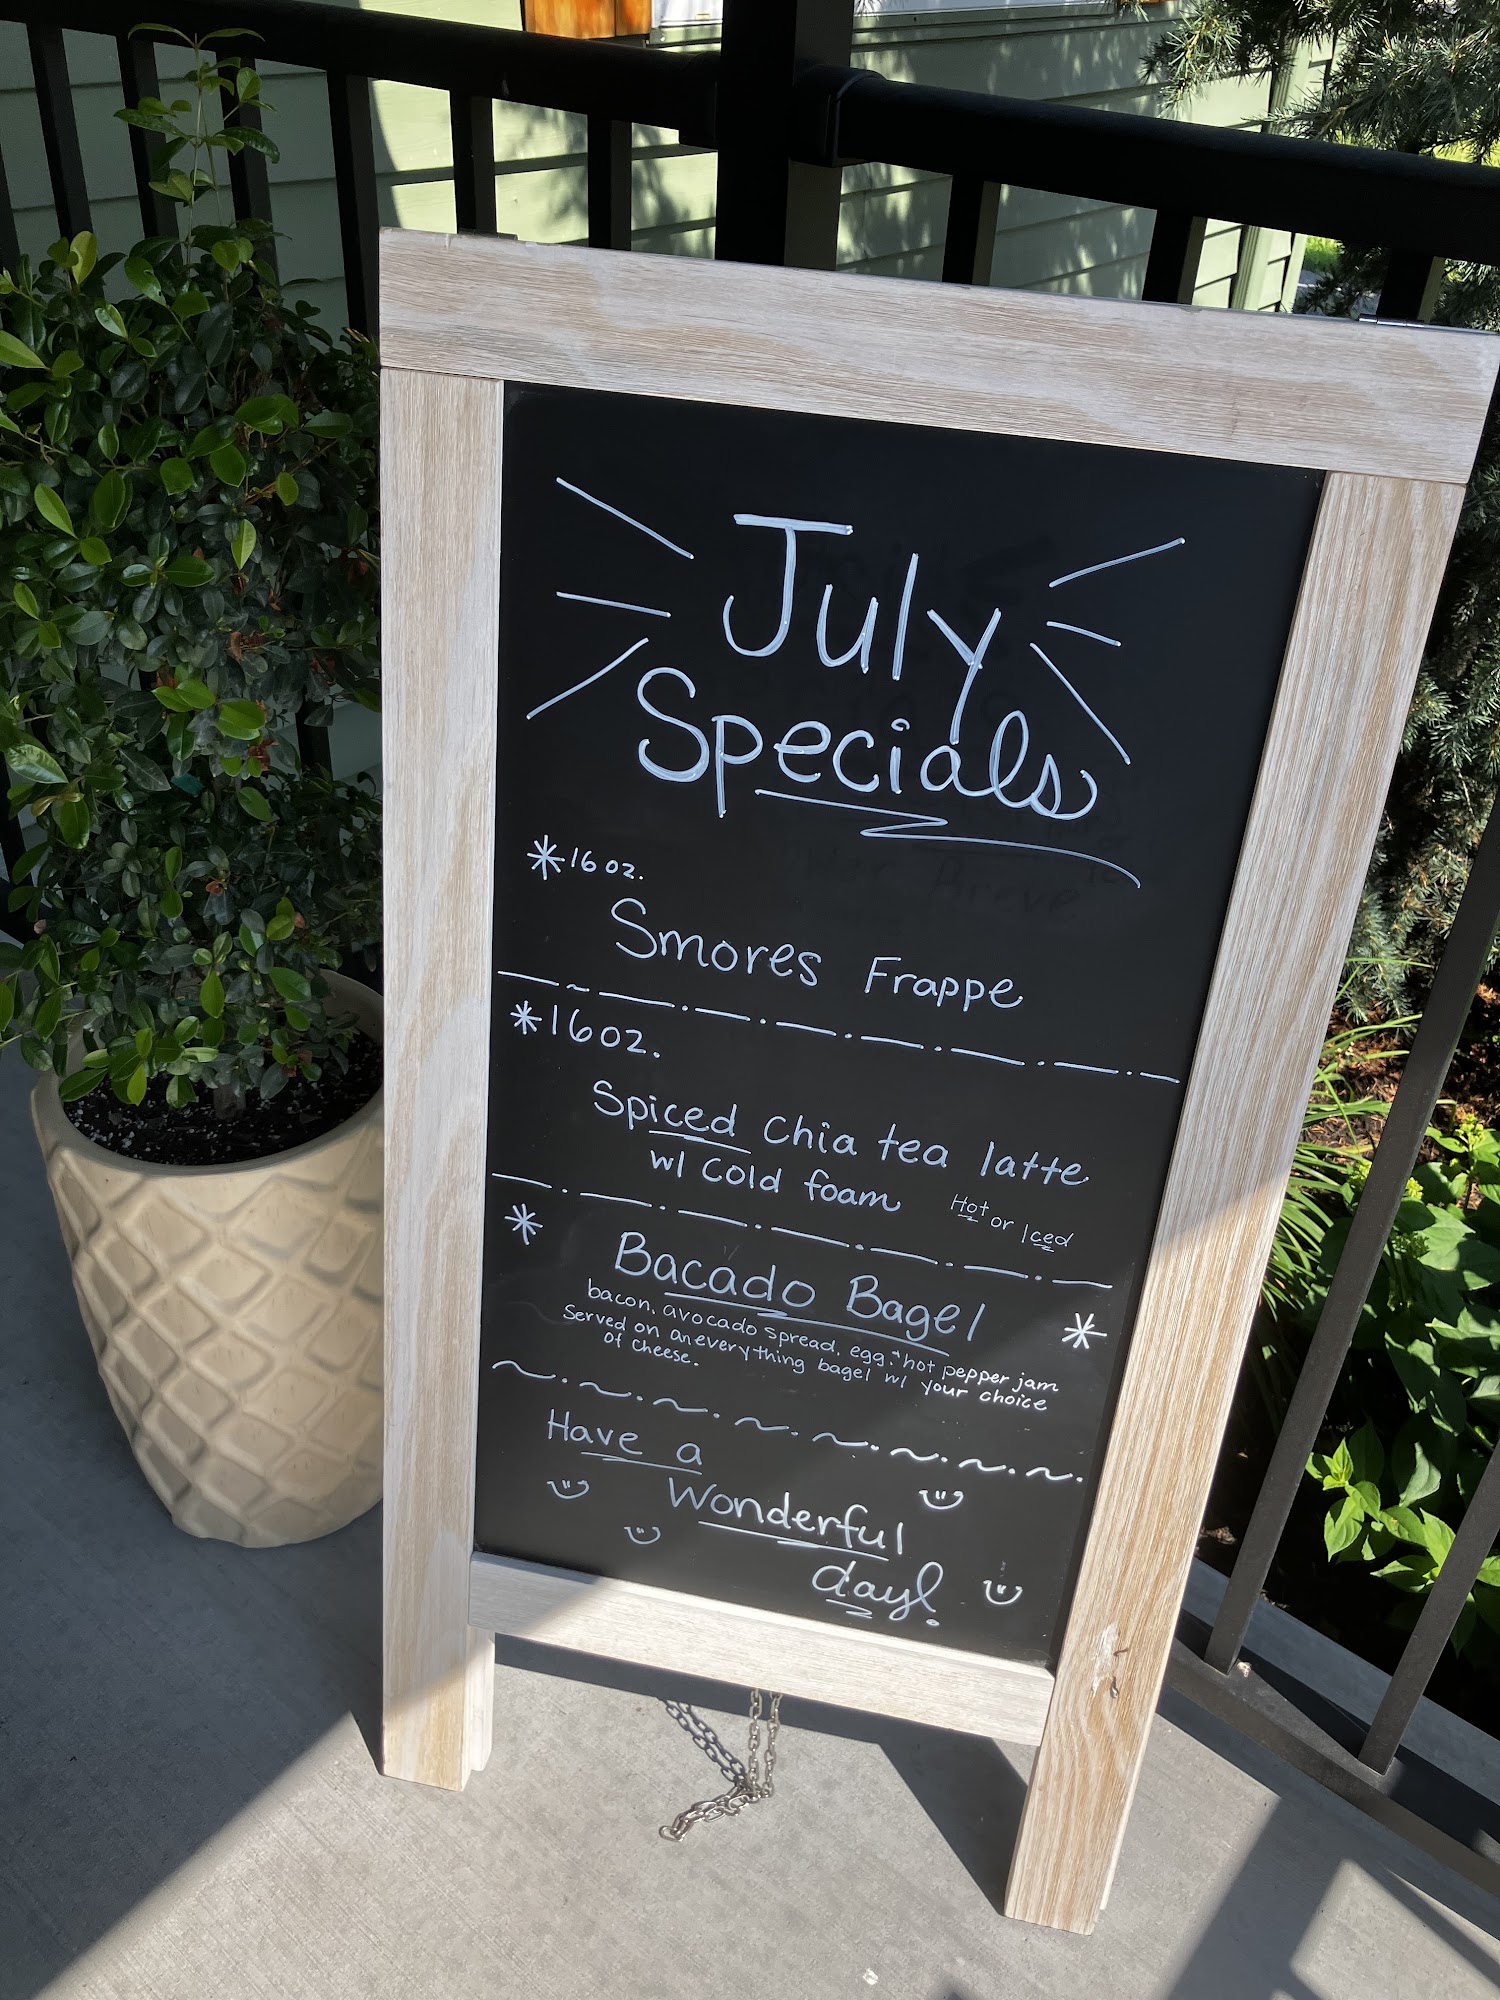 July
Specials
*16 oz.
Smores Frappe
*16oz.
Spiced Chia tea latte
w/ Cold foam
Hot or Iced
*
Bacado Bagel
bacon, avocado spread, egg + hot pepper jam
Served on an everything bagel w/ your choice
of cheese.
*
Have a
Wonderful
day!